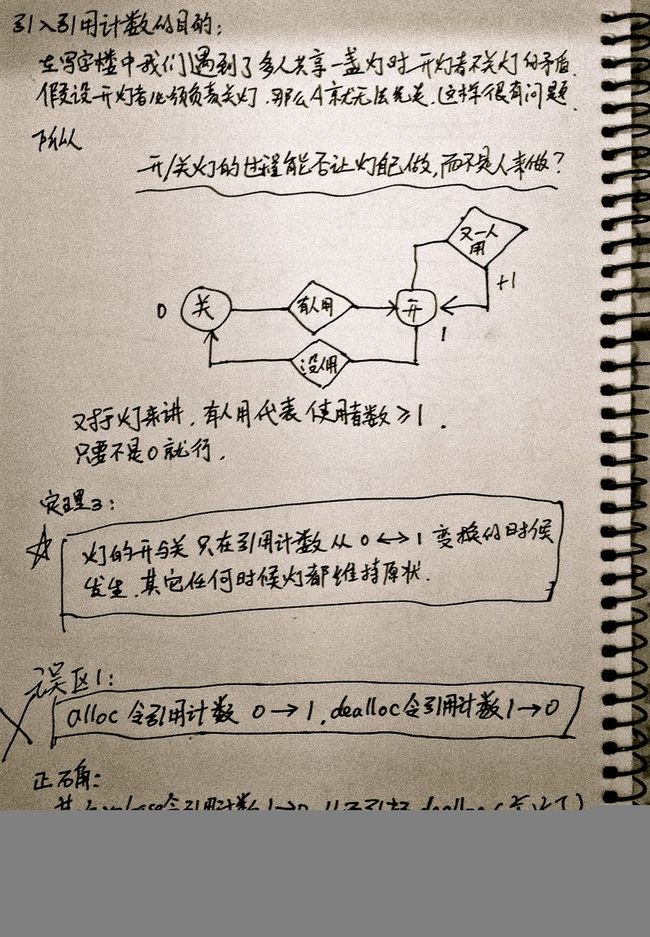 引入引用计数的目的:
在写字楼中我们遇到了多人共享一盏灯时开灯者不关灯的矛盾.
假设开灯者必须负责关灯,那么A就无法先走.这样很有问题.
所以
开/关灯的过程能否让灯自己做,而不是人来做?
又一人
用
+1
0 关 有人用 开
1
没人用
对于灯来讲,有人用代表使用者数≥1.
只要不是0就行.
定理3:
灯的开与关只在引用计数从 0↔1 变换的时候
发生.其它任何时候灯都维持原状.
误区1:
alloc 令引用计数 0→1,dealloc令引用计数1→0
正确:
令引用计数1→0